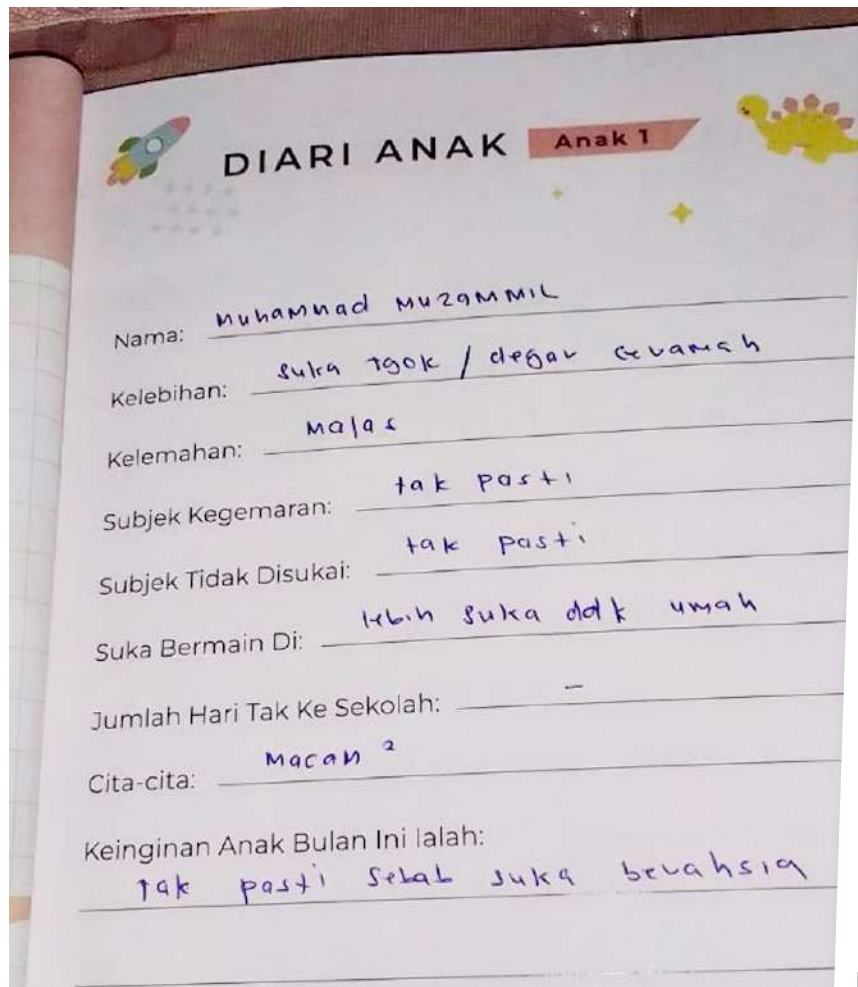 DIARI ANAK Anak 1
Nama: Muhammad Muzammil
Kelebihan: suka tgok / degar ceramah
Kelemahan: Malas
Subjek Kegemaran: tak pasti
Subjek Tidak Disukai: tak pasti
Suka Bermain Di: lebih suka ddk umah
Jumlah Hari Tak Ke Sekolah: -
Cita-cita: Macam ²
Keinginan Anak Bulan Ini Ialah:
Tak pasti sebab suka berahsia